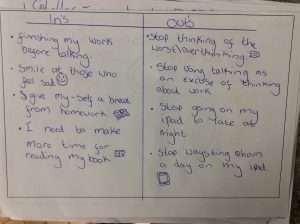 In's
• finishing my work
before talking.
• Smile at those who
feel sad
• I give my-self a break
from homework
• I need to make
more time for
reading my book
Outs
• Stop thinking of the
worst/overthinking
• Stop using talking as
an excuse of thinking
about work
• Stop going on my
ipad to late at
night
• Stop
a day on my ipad